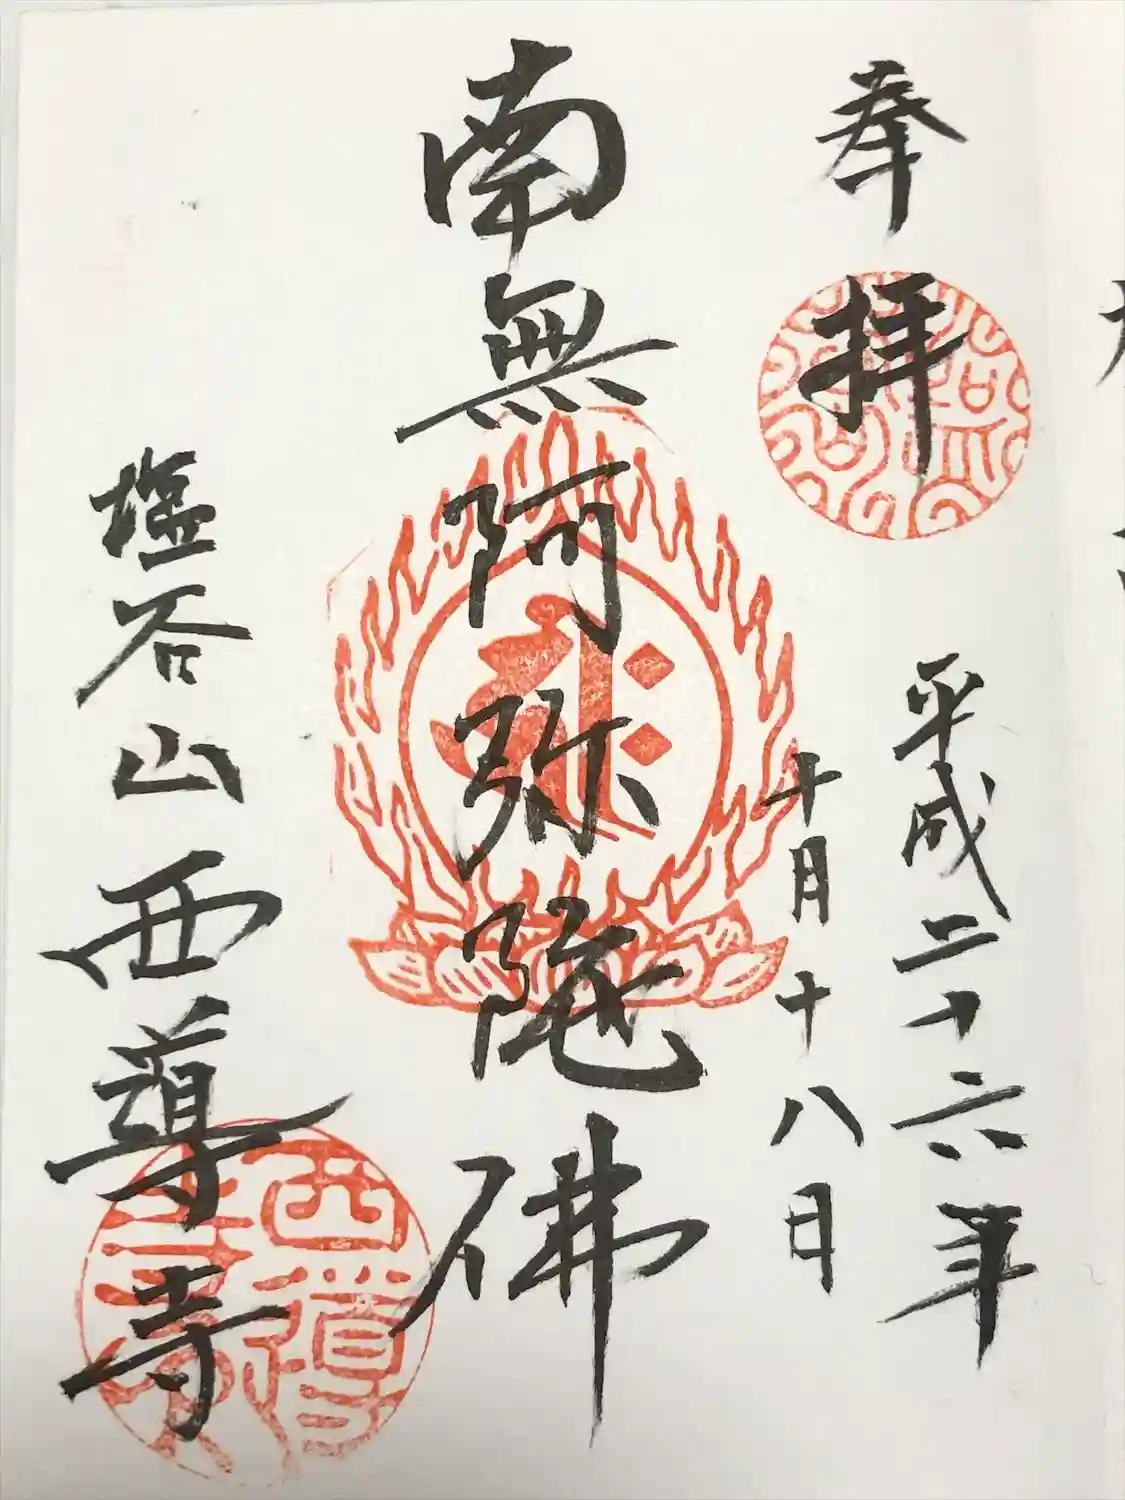 奉拝
平成二十六年
十月十八日
南無阿弥陀佛
塩谷山西導寺
西導寺